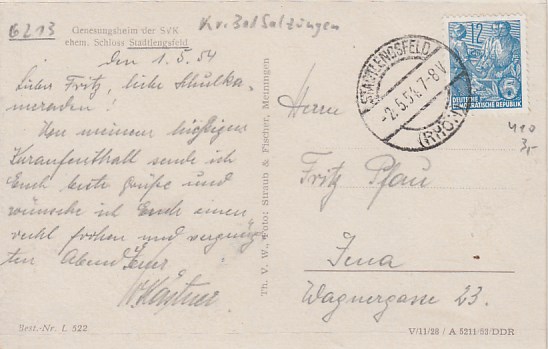 6213
Kr. Bad Salzungen
Genesungsheim der SVK
ehem. Schloss Stadtlengsfeld
den 1.5.54
Lieber Fritz, liebe Schulka-
meraden!
Von meinem hiesigen
Kuraufenthalt sende ich
Euch beste Grüße und
wünsche ich Euch einen
recht frohen und vergnüg-
ten Abend.
W. Kästner
Best.-Nr. L 522
Th. V. W., Foto: Straub & Fischer, Meiningen
STADTLENGSFELD
-2.5.54.7-8V
(RHÖN)
12
DEUTSCHE
DEMOKRATISCHE REPUBLIK
410
3,-
Herrn
Fritz Pfau
Jena
Wagnergasse 23.
V/11/28 / A 5211/53/DDR